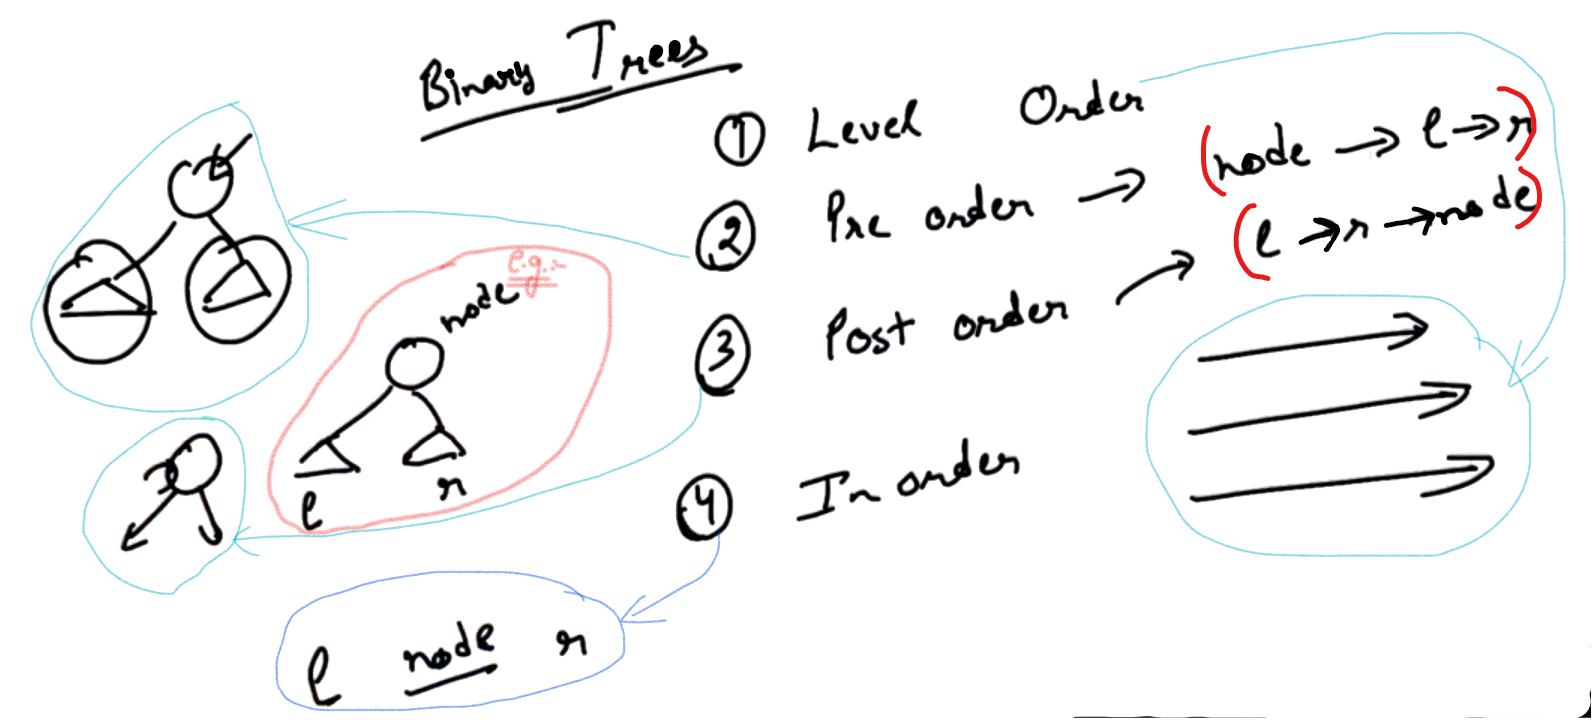 Binary Trees
① Level Order
② Pre order → (node → l → r)
③ Post order → (l → r → node)
④ In order
e.g.:-
node
l r
l node r